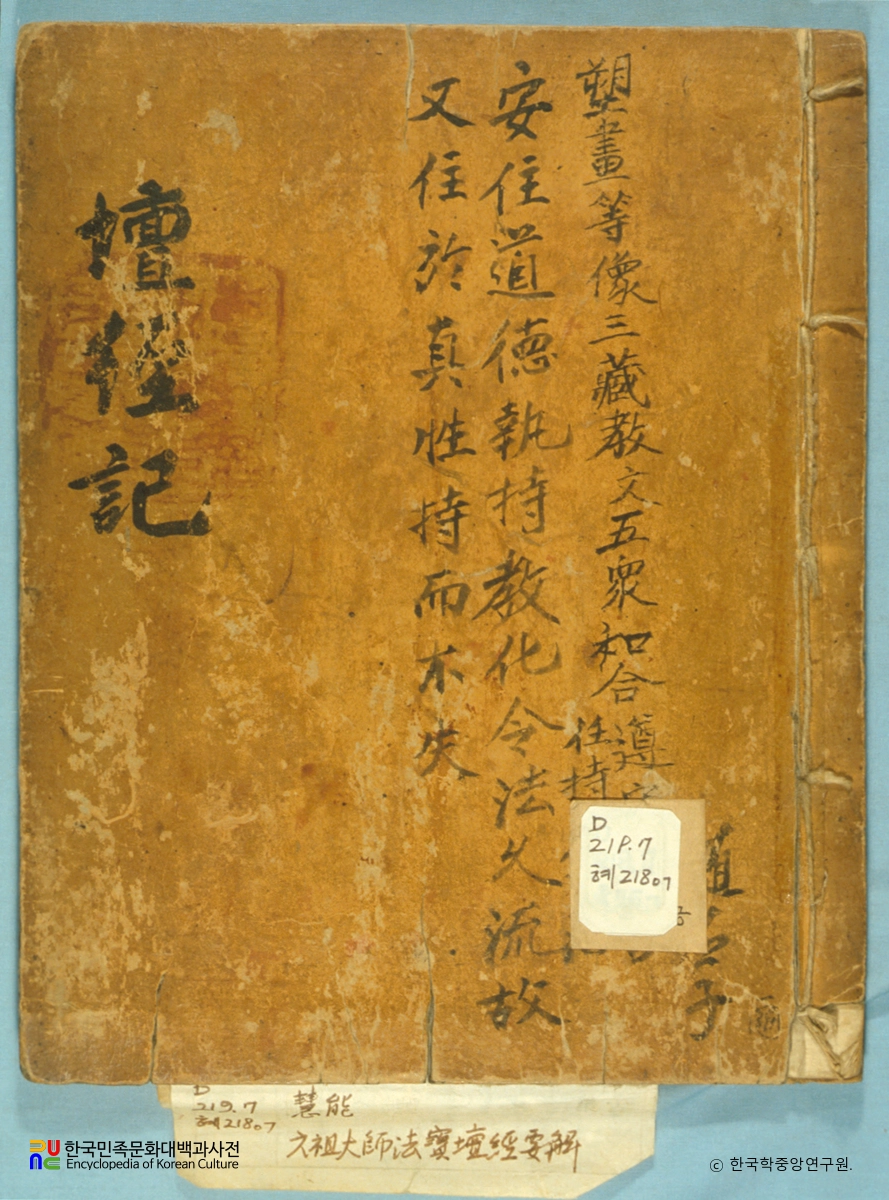 塑畫等像三藏教文五衆和合遵
任持
安住道德執持教化令法久流故
又住於真性持而不失
壇經記
子
D
219.7
혜21807
D
219.7
혜21807
慧能
六祖大師法寶壇經要解
한국민족문화대백과사전
Encyclopedia of Korean Culture
© 한국학중앙연구원.